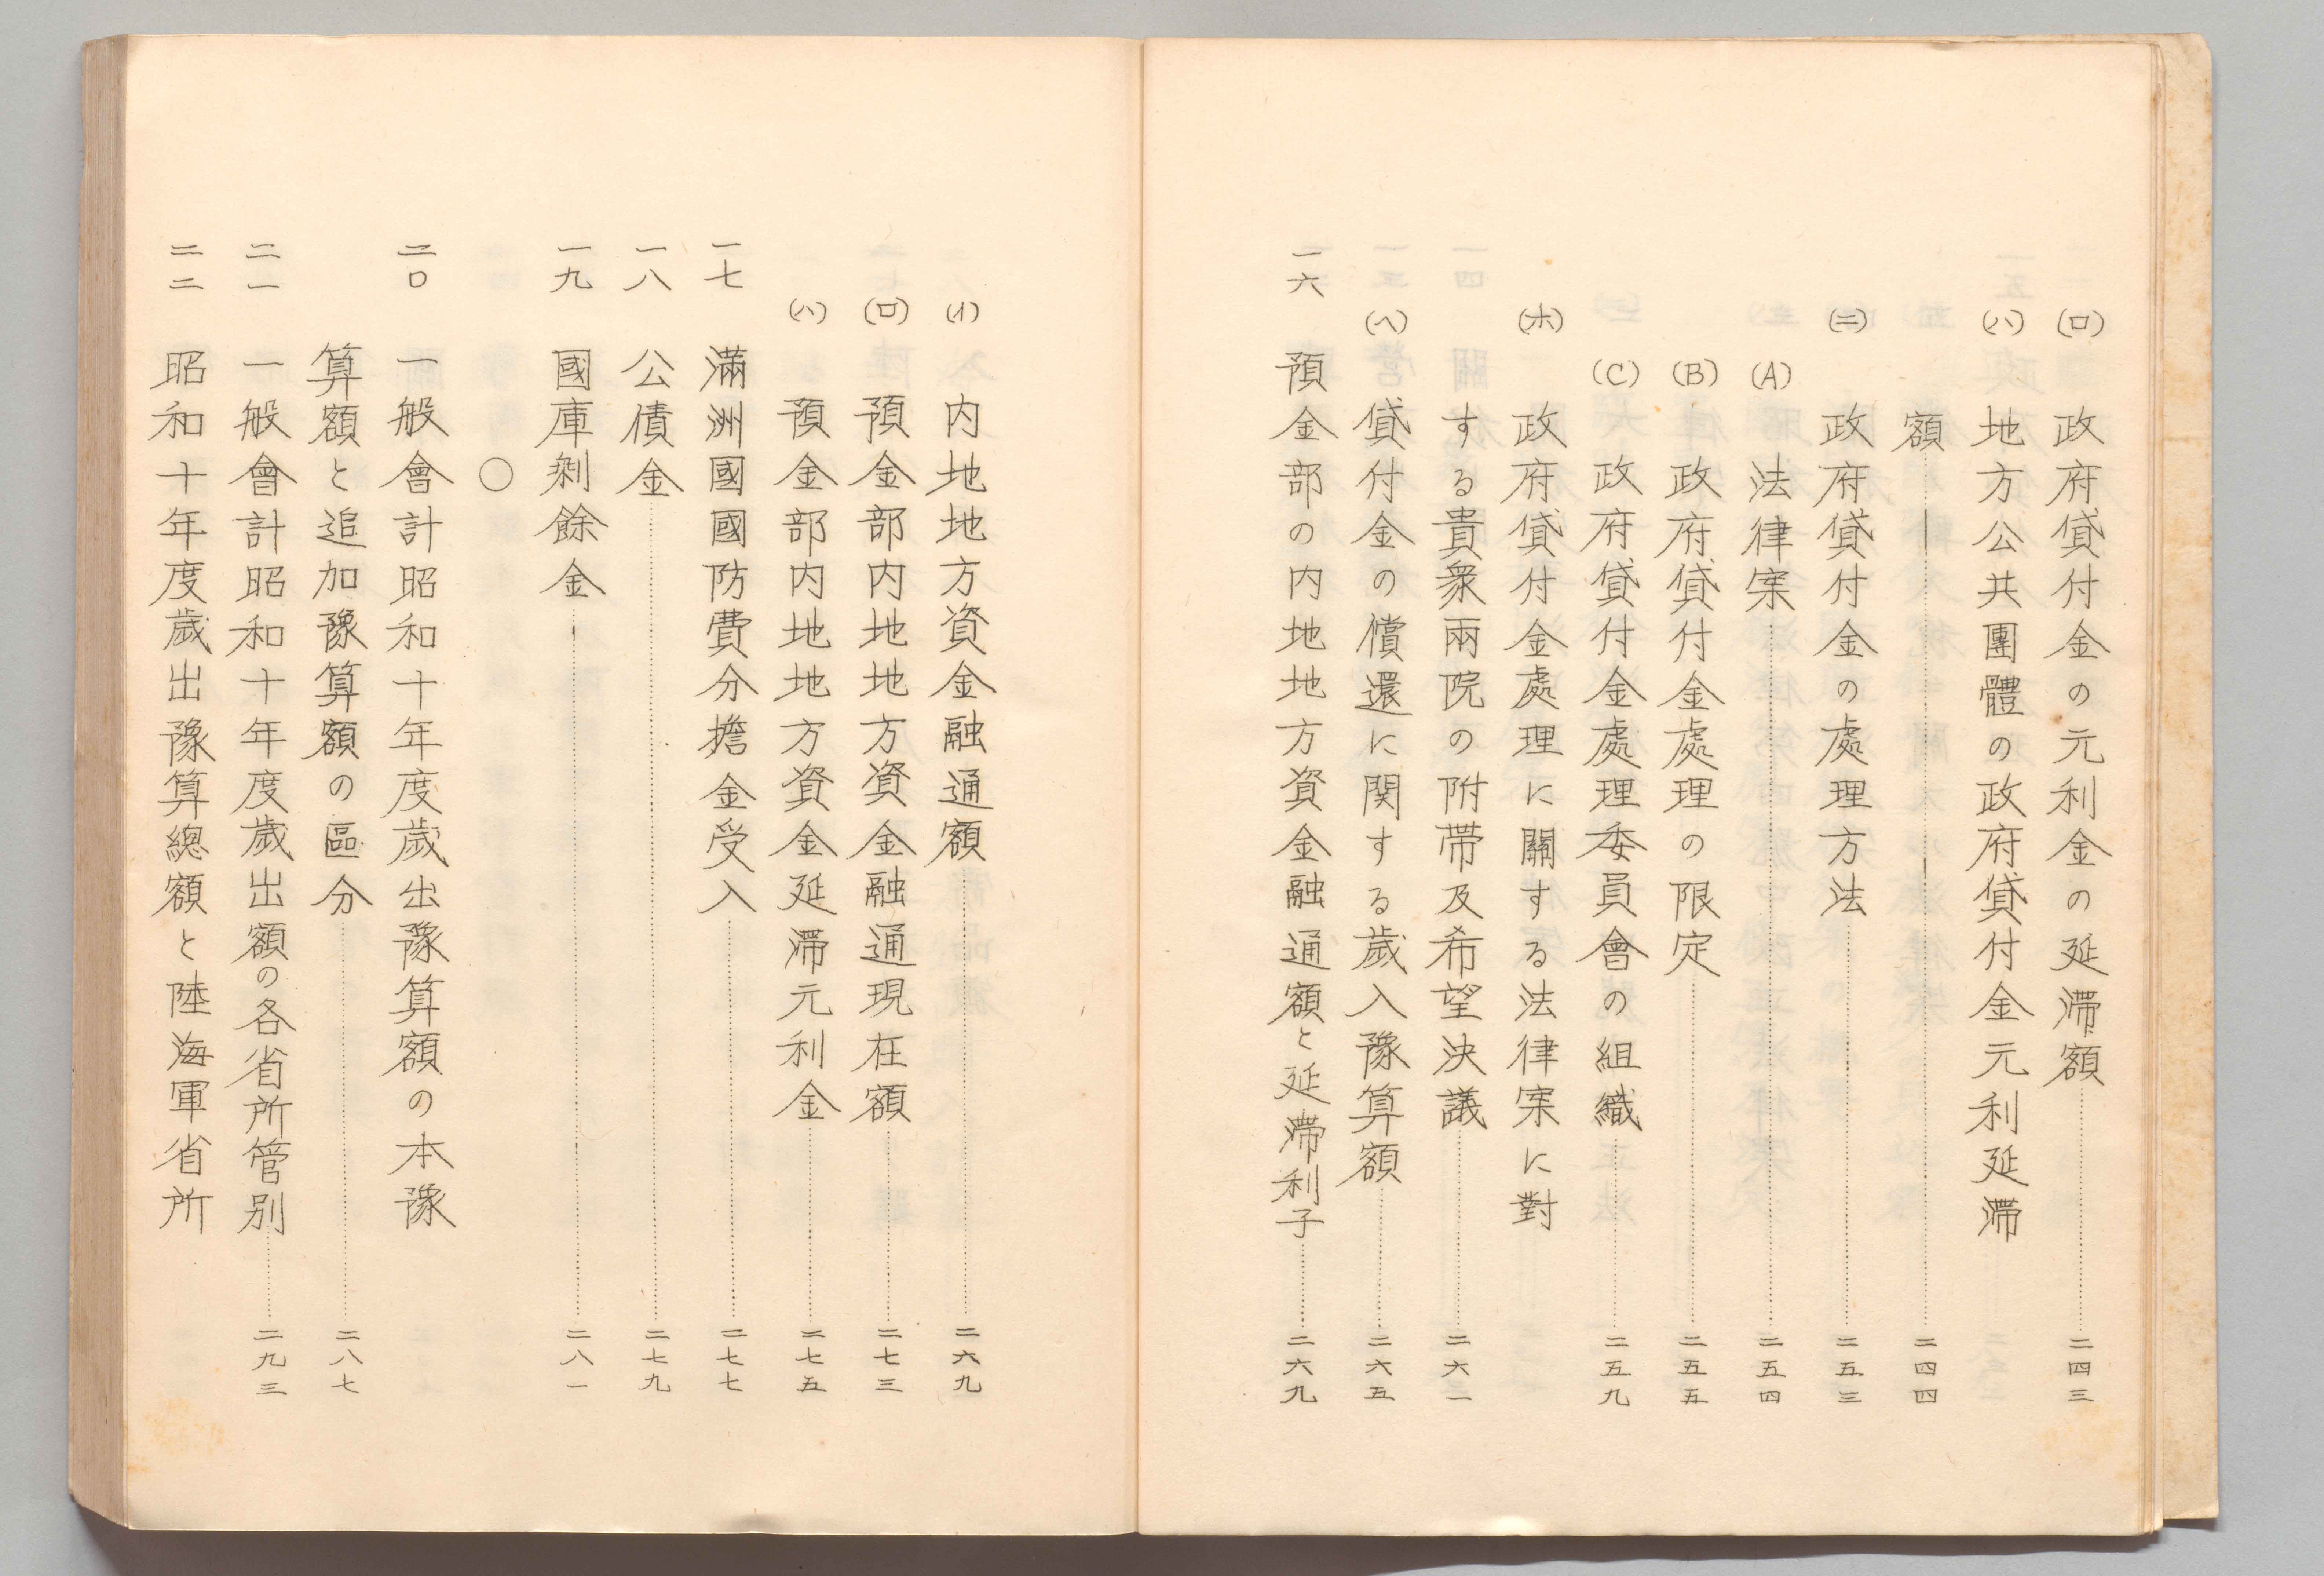 (ロ) 政府貸付金の元利金の延滯額……二四三
(ハ) 地方公共團體の政府貸付金元利延滯
額……二四四
(ニ) 政府貸付金の處理方法……二五三
(A) 法律案……二五四
(B) 政府貸付金處理の限定……二五五
(C) 政府貸付金處理委員會の組織……二五九
(ホ) 政府貸付金處理に關する法律案に對
する貴衆兩院の附帶及希望決議……二六一
(ヘ) 貸付金の償還に関する歲入豫算額……二六五
一六 預金部の内地地方資金融通額と延滯利子……二六九
(イ) 内地地方資金融通額……二六九
(ロ) 預金部内地地方資金融通現在額……二七三
(ハ) 預金部内地地方資金延滯元利金……二七五
一七 滿洲國國防費分擔金受入……二七七
一八 公債金……二七九
一九 國庫剩餘金……二八一
○
二〇 一般會計昭和十年度歲出豫算額の本豫
算額と追加豫算額の區分……二八七
二一 一般會計昭和十年度歲出額の各省所管別……二九三
二二 昭和十年度歲出豫算總額と陸海軍省所